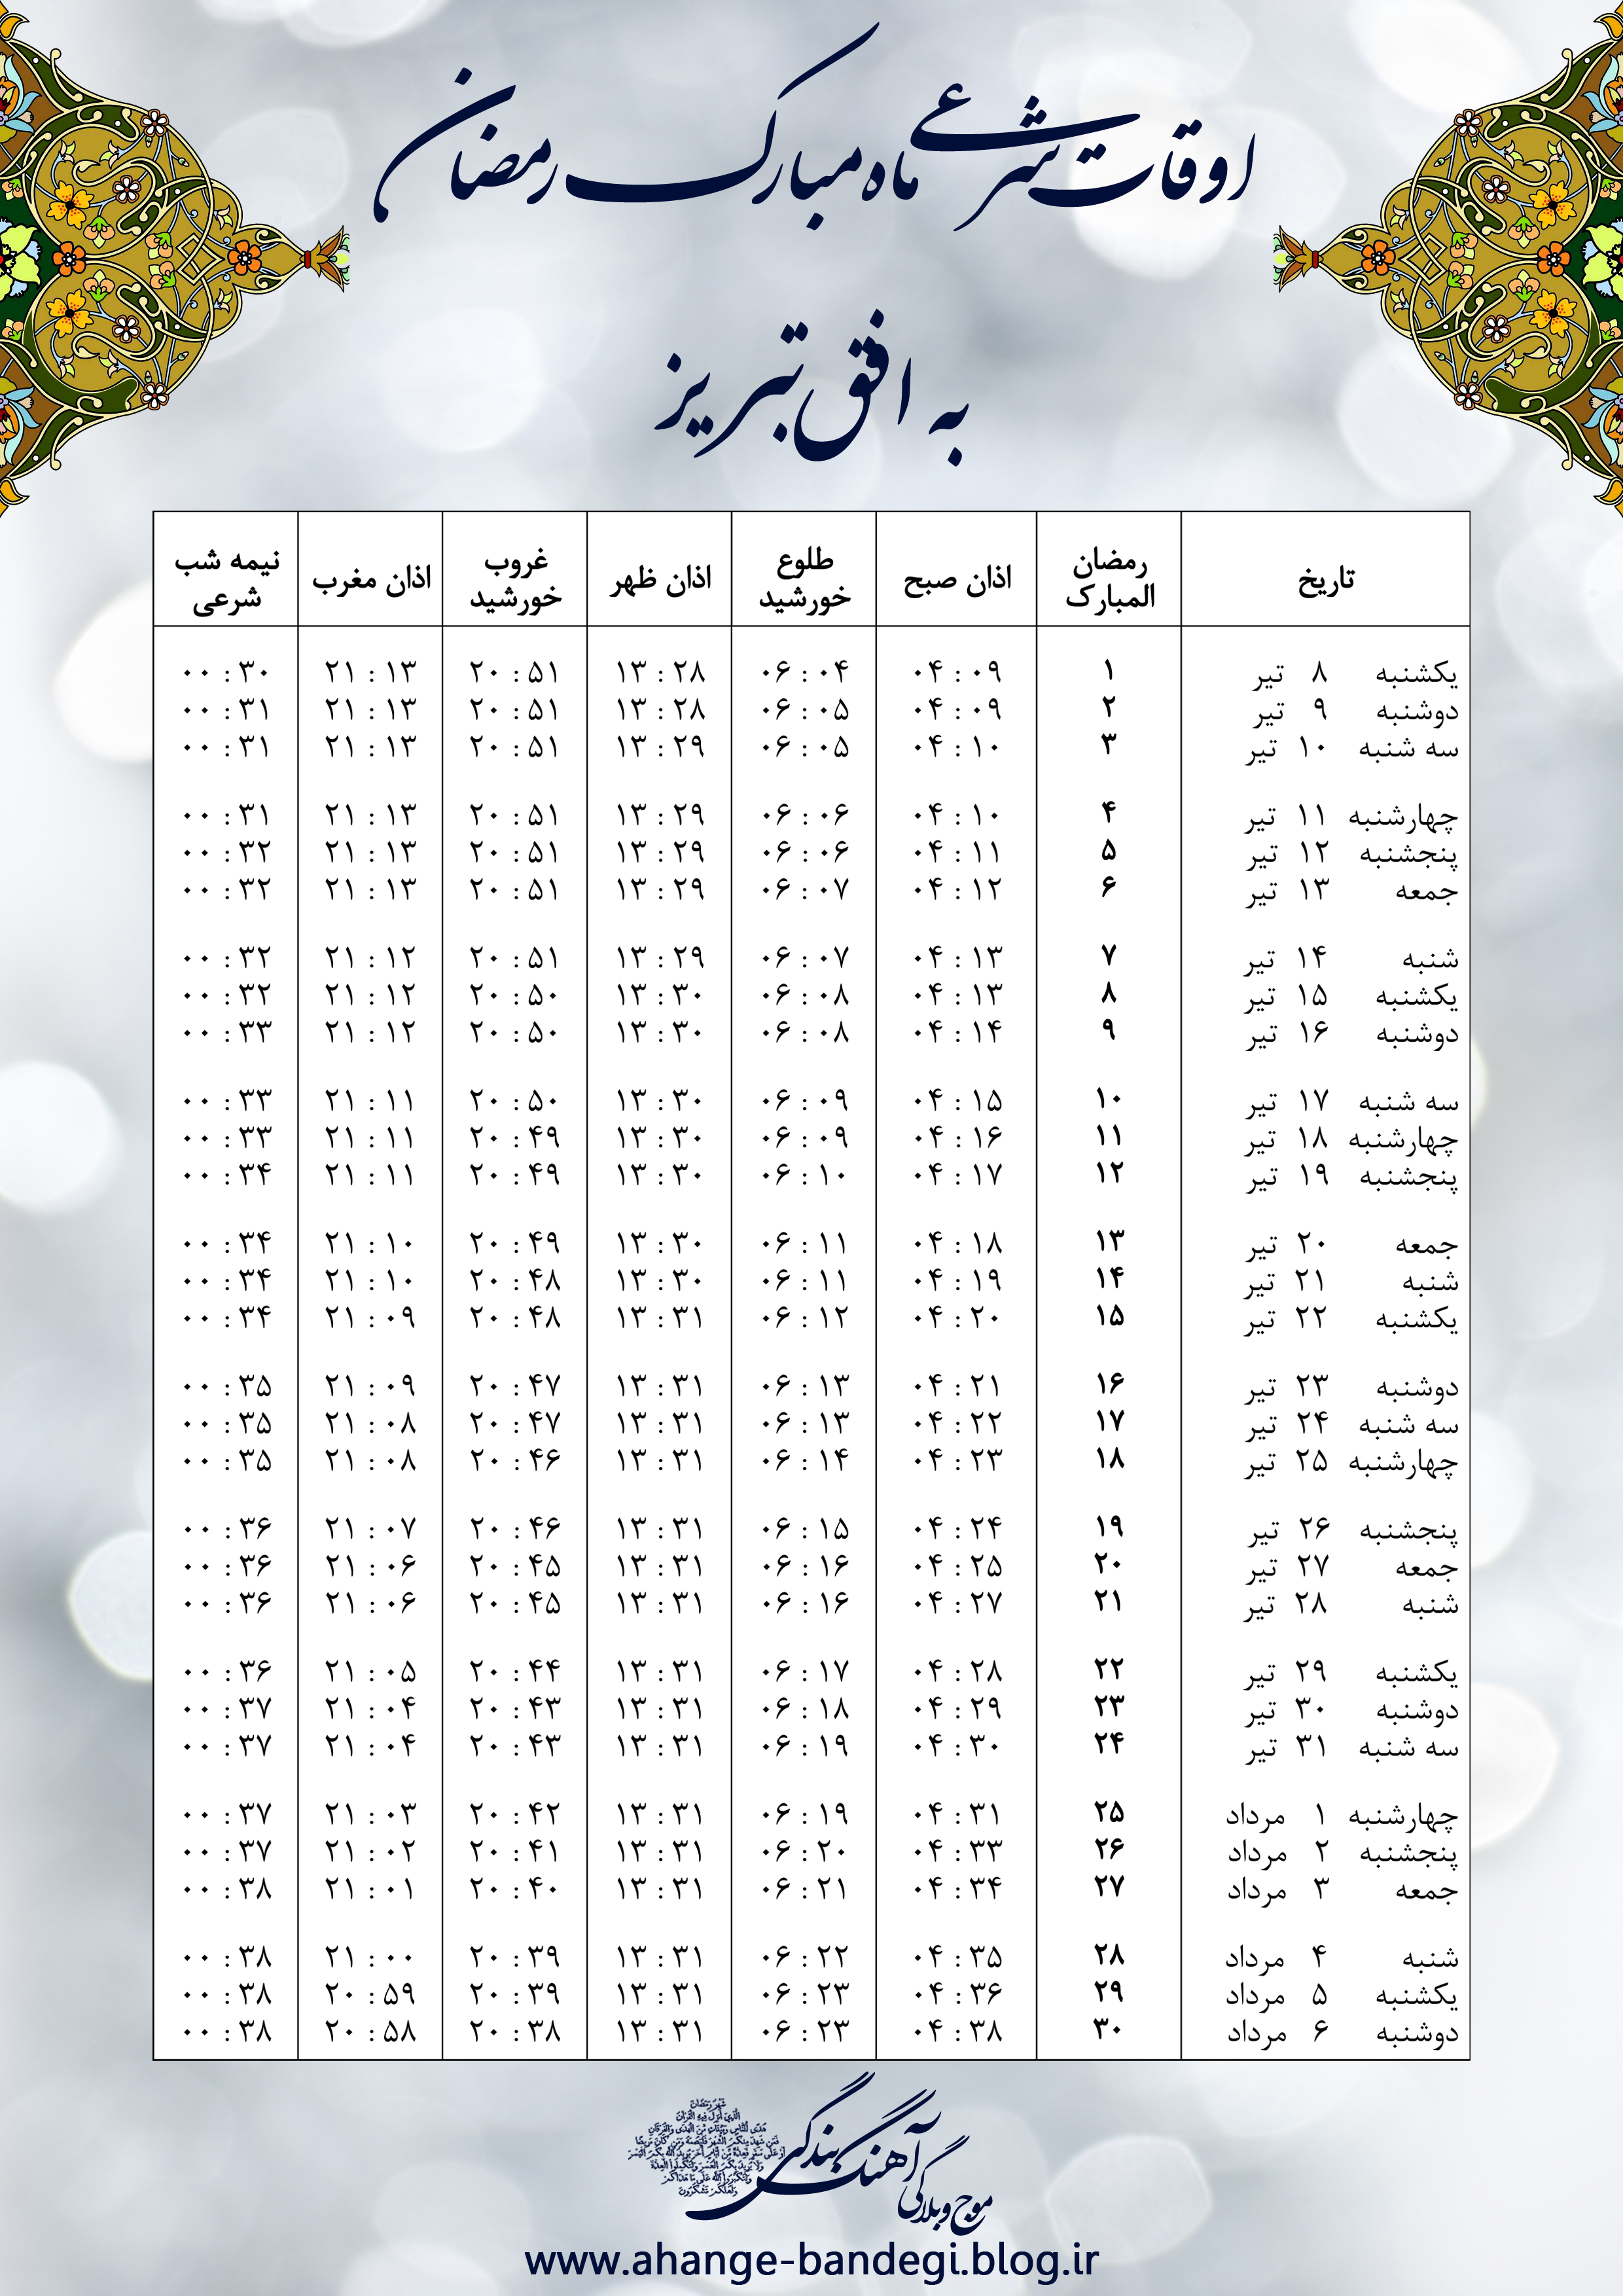 اوقات شرعی ماه مبارک رمضان
به افق تبریز
تاریخ رمضان المبارک اذان صبح طلوع خورشید اذان ظهر غروب خورشید اذان مغرب نیمه شب شرعی
یکشنبه ۸ تیر ۱ ۰۴:۰۹ ۰۶:۰۴ ۱۳:۲۸ ۲۰:۵۱ ۲۱:۱۳ ۰۰:۳۰
دوشنبه ۹ تیر ۲ ۰۴:۰۹ ۰۶:۰۵ ۱۳:۲۸ ۲۰:۵۱ ۲۱:۱۳ ۰۰:۳۱
سه شنبه ۱۰ تیر ۳ ۰۴:۱۰ ۰۶:۰۵ ۱۳:۲۹ ۲۰:۵۱ ۲۱:۱۳ ۰۰:۳۱
چهارشنبه ۱۱ تیر ۴ ۰۴:۱۰ ۰۶:۰۶ ۱۳:۲۹ ۲۰:۵۱ ۲۱:۱۳ ۰۰:۳۱
پنجشنبه ۱۲ تیر ۵ ۰۴:۱۱ ۰۶:۰۶ ۱۳:۲۹ ۲۰:۵۱ ۲۱:۱۳ ۰۰:۳۲
جمعه ۱۳ تیر ۶ ۰۴:۱۲ ۰۶:۰۷ ۱۳:۲۹ ۲۰:۵۱ ۲۱:۱۳ ۰۰:۳۲
شنبه ۱۴ تیر ۷ ۰۴:۱۳ ۰۶:۰۷ ۱۳:۲۹ ۲۰:۵۱ ۲۱:۱۲ ۰۰:۳۲
یکشنبه ۱۵ تیر ۸ ۰۴:۱۳ ۰۶:۰۸ ۱۳:۳۰ ۲۰:۵۰ ۲۱:۱۲ ۰۰:۳۲
دوشنبه ۱۶ تیر ۹ ۰۴:۱۴ ۰۶:۰۸ ۱۳:۳۰ ۲۰:۵۰ ۲۱:۱۲ ۰۰:۳۳
سه شنبه ۱۷ تیر ۱۰ ۰۴:۱۵ ۰۶:۰۹ ۱۳:۳۰ ۲۰:۵۰ ۲۱:۱۱ ۰۰:۳۳
چهارشنبه ۱۸ تیر ۱۱ ۰۴:۱۶ ۰۶:۰۹ ۱۳:۳۰ ۲۰:۴۹ ۲۱:۱۱ ۰۰:۳۳
پنجشنبه ۱۹ تیر ۱۲ ۰۴:۱۷ ۰۶:۱۰ ۱۳:۳۰ ۲۰:۴۹ ۲۱:۱۱ ۰۰:۳۴
جمعه ۲۰ تیر ۱۳ ۰۴:۱۸ ۰۶:۱۱ ۱۳:۳۰ ۲۰:۴۹ ۲۱:۱۰ ۰۰:۳۴
شنبه ۲۱ تیر ۱۴ ۰۴:۱۹ ۰۶:۱۱ ۱۳:۳۰ ۲۰:۴۸ ۲۱:۱۰ ۰۰:۳۴
یکشنبه ۲۲ تیر ۱۵ ۰۴:۲۰ ۰۶:۱۲ ۱۳:۳۱ ۲۰:۴۸ ۲۱:۰۹ ۰۰:۳۴
دوشنبه ۲۳ تیر ۱۶ ۰۴:۲۱ ۰۶:۱۳ ۱۳:۳۱ ۲۰:۴۷ ۲۱:۰۹ ۰۰:۳۵
سه شنبه ۲۴ تیر ۱۷ ۰۴:۲۲ ۰۶:۱۳ ۱۳:۳۱ ۲۰:۴۷ ۲۱:۰۸ ۰۰:۳۵
چهارشنبه ۲۵ تیر ۱۸ ۰۴:۲۳ ۰۶:۱۴ ۱۳:۳۱ ۲۰:۴۶ ۲۱:۰۸ ۰۰:۳۵
پنجشنبه ۲۶ تیر ۱۹ ۰۴:۲۴ ۰۶:۱۵ ۱۳:۳۱ ۲۰:۴۶ ۲۱:۰۷ ۰۰:۳۶
جمعه ۲۷ تیر ۲۰ ۰۴:۲۵ ۰۶:۱۶ ۱۳:۳۱ ۲۰:۴۵ ۲۱:۰۶ ۰۰:۳۶
شنبه ۲۸ تیر ۲۱ ۰۴:۲۷ ۰۶:۱۶ ۱۳:۳۱ ۲۰:۴۵ ۲۱:۰۶ ۰۰:۳۶
یکشنبه ۲۹ تیر ۲۲ ۰۴:۲۸ ۰۶:۱۷ ۱۳:۳۱ ۲۰:۴۴ ۲۱:۰۵ ۰۰:۳۶
دوشنبه ۳۰ تیر ۲۳ ۰۴:۲۹ ۰۶:۱۸ ۱۳:۳۱ ۲۰:۴۳ ۲۱:۰۴ ۰۰:۳۷
سه شنبه ۳۱ تیر ۲۴ ۰۴:۳۰ ۰۶:۱۹ ۱۳:۳۱ ۲۰:۴۳ ۲۱:۰۴ ۰۰:۳۷
چهارشنبه ۱ مرداد ۲۵ ۰۴:۳۱ ۰۶:۱۹ ۱۳:۳۱ ۲۰:۴۲ ۲۱:۰۳ ۰۰:۳۷
پنجشنبه ۲ مرداد ۲۶ ۰۴:۳۳ ۰۶:۲۰ ۱۳:۳۱ ۲۰:۴۱ ۲۱:۰۲ ۰۰:۳۷
جمعه ۳ مرداد ۲۷ ۰۴:۳۴ ۰۶:۲۱ ۱۳:۳۱ ۲۰:۴۰ ۲۱:۰۱ ۰۰:۳۸
شنبه ۴ مرداد ۲۸ ۰۴:۳۵ ۰۶:۲۲ ۱۳:۳۱ ۲۰:۳۹ ۲۱:۰۰ ۰۰:۳۸
یکشنبه ۵ مرداد ۲۹ ۰۴:۳۶ ۰۶:۲۳ ۱۳:۳۱ ۲۰:۳۹ ۲۰:۵۹ ۰۰:۳۸
دوشنبه ۶ مرداد ۳۰ ۰۴:۳۸ ۰۶:۲۳ ۱۳:۳۱ ۲۰:۳۸ ۲۰:۵۸ ۰۰:۳۸
موج وبلاگی آهنگ بندگی
www.ahange-bandegi.blog.ir